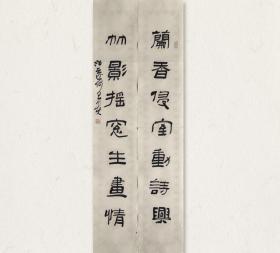 蘭香侵室動詩興
竹影摇窓生畫情